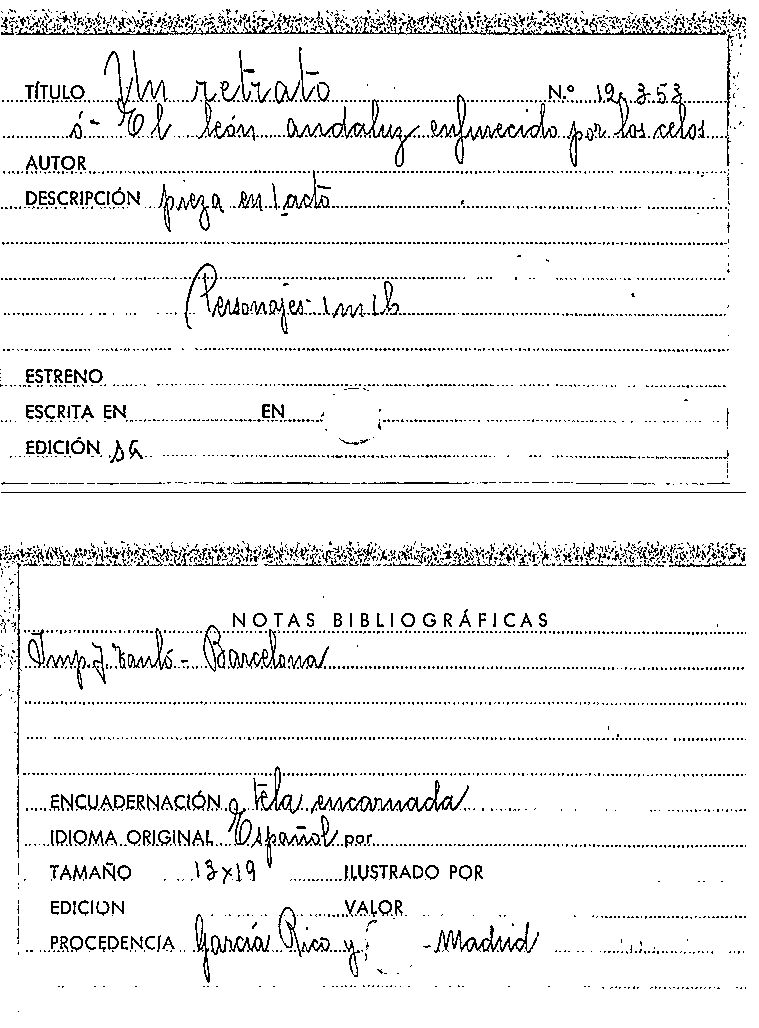 TÍTULO Un retrato N.º 12.353
ó- El león andaluz enfurecido por los celos
AUTOR
DESCRIPCIÓN pieza en 1 acto
Personajes 1 m 1 h
ESTRENO
ESCRITA EN EN
EDICIÓN
NOTAS BIBLIOGRÁFICAS
Imp. J. - Barcelona
ENCUADERNACIÓN tela encarnada
IDIOMA ORIGINAL Español por
TAMAÑO 13x19 ILUSTRADO POR
EDICION VALOR
PROCEDENCIA García Rico y - Madrid